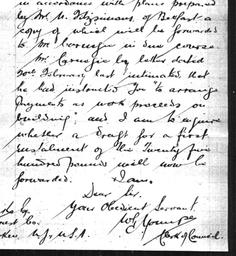 in accordance with plans prepared
by Mr. U. Fitzsimons, of Belfast a
copy of which will be forwarded
to Mr Carnegie in due course.
Mr Carnegie by letter dated
20th February last intimated that
he had instructed you "to arrange
payments as work proceeds on
building", and I am to enquire
whether a draft for a first
instalment of the Twenty five
hundred pounds will now be
forwarded. I am.
Dear Sir
Your Obedient Servant.
Clerk of Council
N.J., U.S.A.